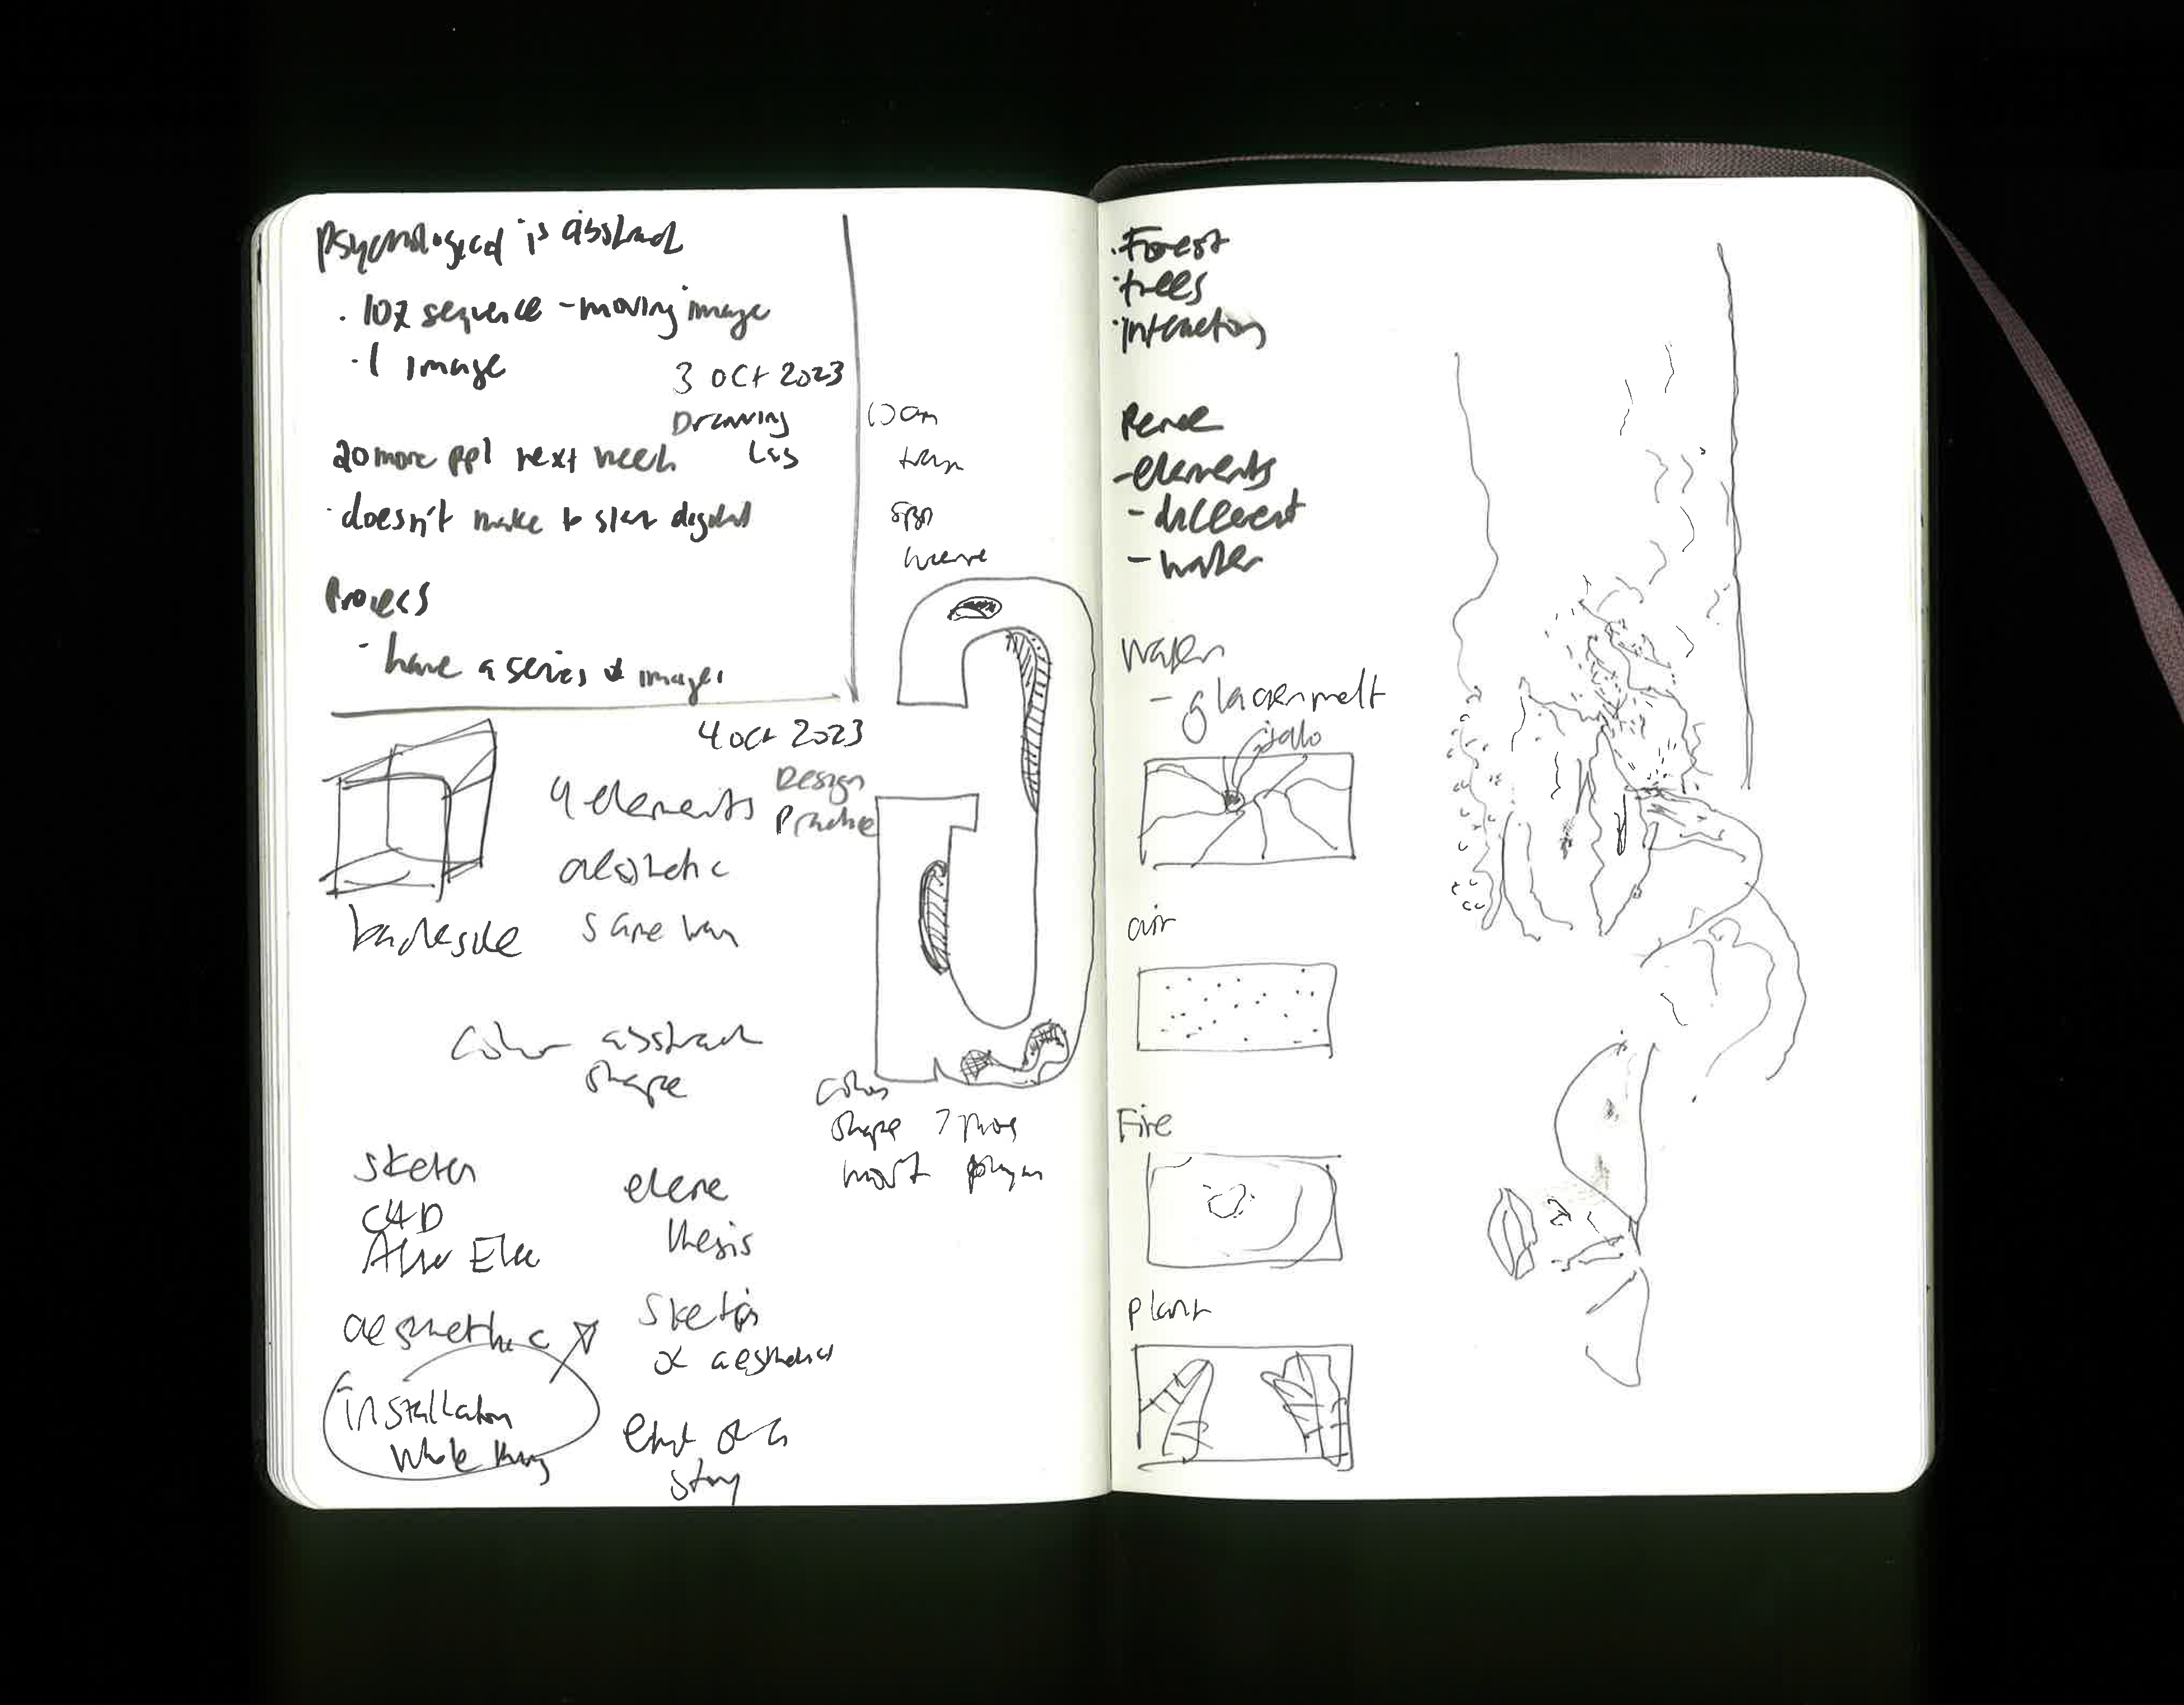 psychological is abstract
. 10% sequence - moving image
. 1 image
3 Oct 2023
Drawing
20 more ppl next week
· doesn't make to start digital
Process
- have a series of images
10am
4 Oct 2023
Design
Practice
4 elements
aesthetic
backside
same way
color abstract
shape
color
shape
sketch
C4D
elene
thesis
aesthetic
sketch
aesthetics
installation
whole thing
end of a
story
. Forest
· trees
· interaction
- elements
- different
- water
water
- glacier melt
air
Fire
plant